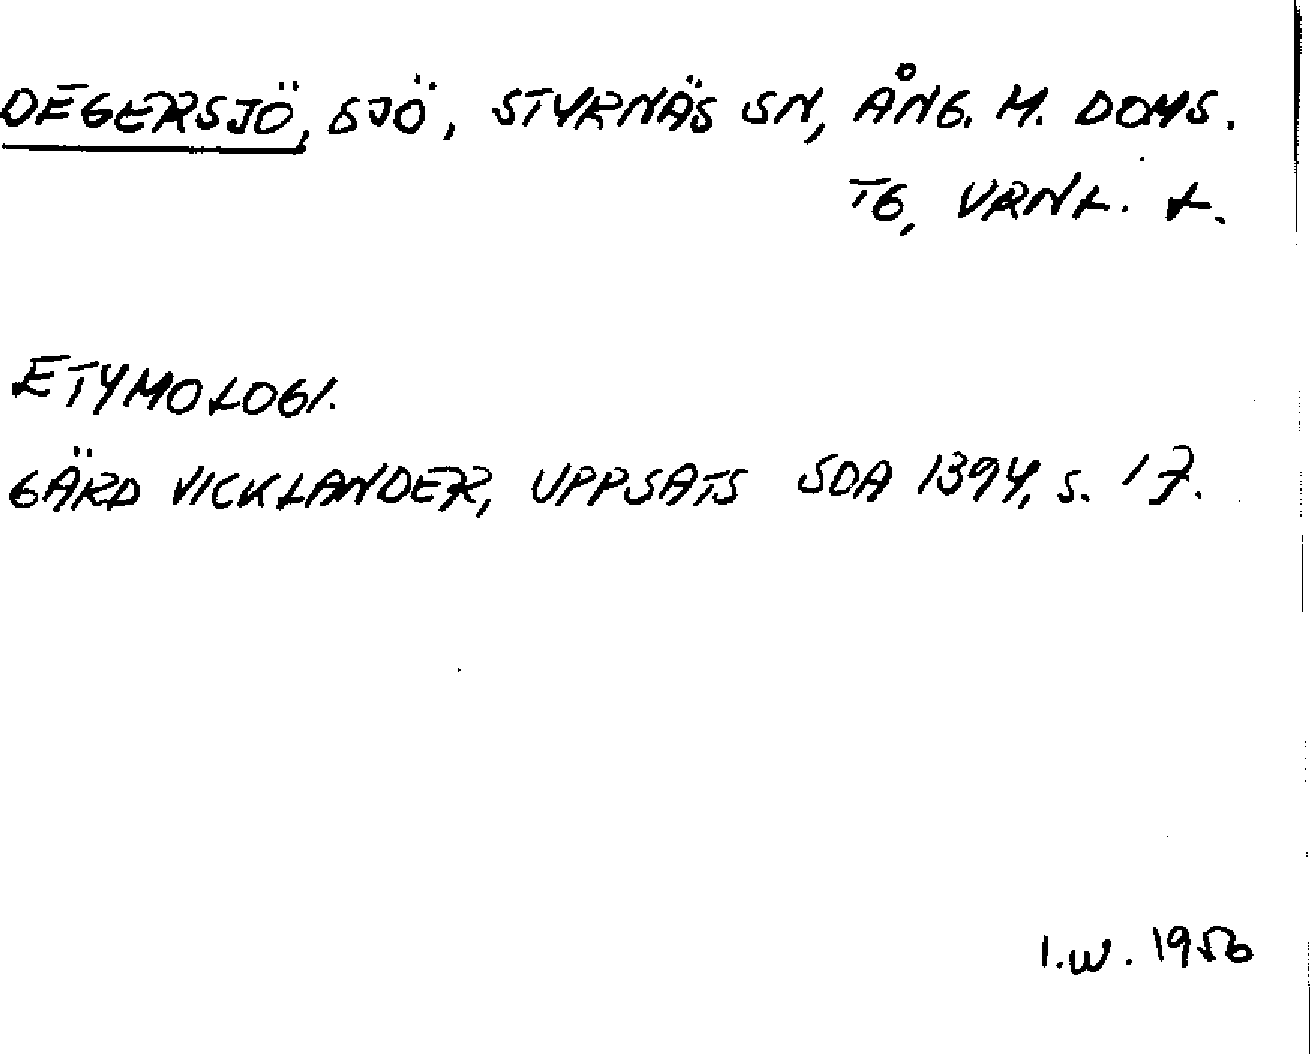 DEGERSJÖ, SJÖ, STYRNÄS SN, ÅNG. M. DOMS.
TG, VRNL. L.
ETYMOLOGI.
GÄRD VICKLANDER, UPPSATS SOA 1394, S. 17.
I.W. 1956